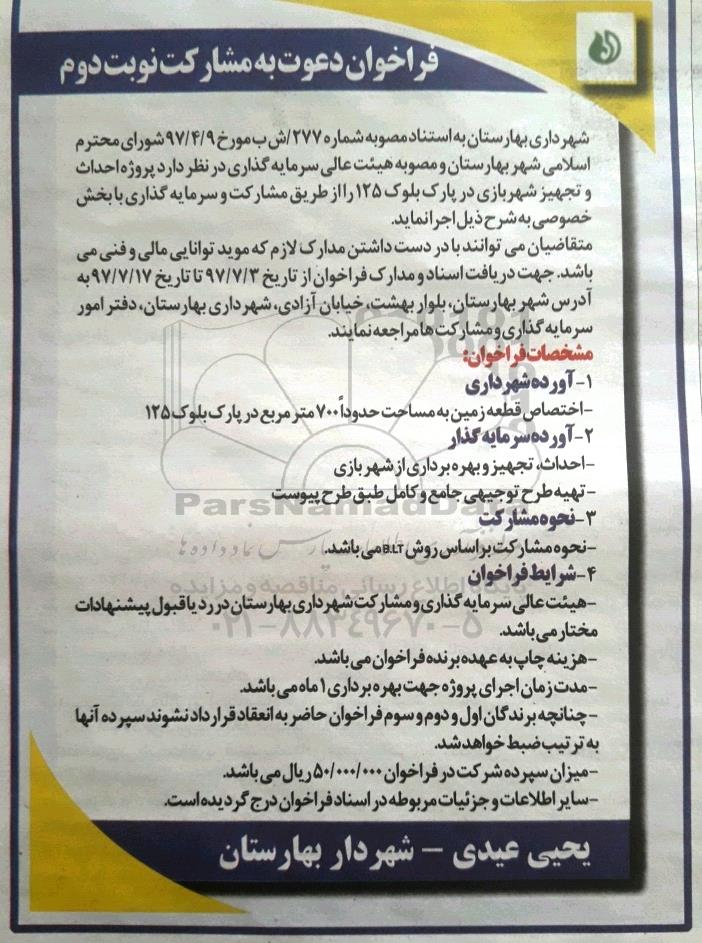 فراخوان دعوت به مشارکت نوبت دوم
شهرداری بهارستان به استناد مصوبه شماره ۲۷۷/ش ب مورخ ۹۷/۴/۹ شورای محترم
اسلامی شهر بهارستان و مصوبه هیئت عالی سرمایه گذاری در نظر دارد پروژه احداث
و تجهیز شهربازی در پارک بلوک ۱۲۵ را از طریق مشارکت و سرمایه گذاری با بخش
خصوصی به شرح ذیل اجرا نماید.
متقاضیان می توانند با در دست داشتن مدارک لازم که موید توانایی مالی و فنی می
باشد. جهت دریافت اسناد و مدارک فراخوان از تاریخ ۹۷/۷/۳ تا تاریخ ۹۷/۷/۱۷ به
آدرس شهر بهارستان، بلوار بهشت، خیابان آزادی، شهرداری بهارستان، دفتر امور
سرمایه گذاری و مشارکت ها مراجعه نمایند.
مشخصات فراخوان:
۱- آورده شهرداری
-اختصاص قطعه زمین به مساحت حدوداً ۷۰۰ متر مربع در پارک بلوک ۱۲۵
۲- آورده سرمایه گذار
-احداث، تجهیز و بهره برداری از شهربازی
-تهیه طرح توجیهی جامع و کامل طبق طرح پیوست
ParsNamadData
۳- نحوه مشارکت
-نحوه مشارکت براساس روش B.L.T می باشد.
پارس نماد داده ها
۴- شرایط فراخوان
پایگاه اطلاع رسانی مناقصه و مزایده
-هیئت عالی سرمایه گذاری و مشارکت شهرداری بهارستان در رد یا قبول پیشنهادات
۰۲۱-۸۸۳۴۹۶۷۰-۵
مختار می باشد.
-هزینه چاپ به عهده برنده فراخوان می باشد.
-مدت زمان اجرای پروژه جهت بهره برداری ۱ ماه می باشد.
-چنانچه برندگان اول و دوم و سوم فراخوان حاضر به انعقاد قرارداد نشوند سپرده آنها
به ترتیب ضبط خواهد شد.
-میزان سپرده شرکت در فراخوان ۵۰/۰۰۰/۰۰۰ ریال می باشد.
-سایر اطلاعات و جزئیات مربوطه در اسناد فراخوان درج گردیده است.
یحیی عیدی - شهردار بهارستان